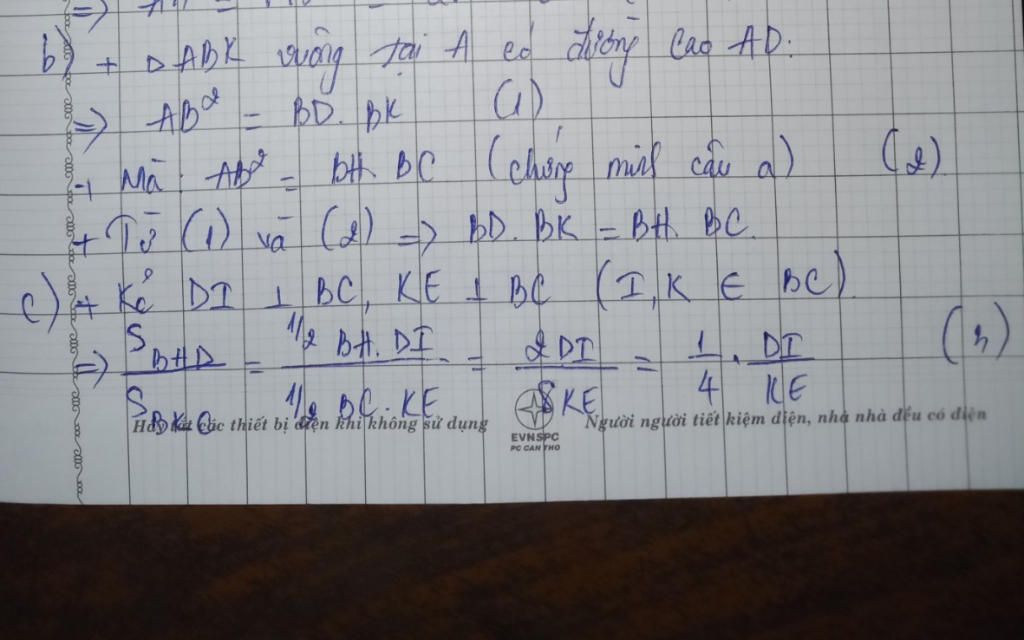 b) + Δ ABK vuông tại A có đường cao AD.
=> AB² = BD. BK (1)
+ Mà: AB² = BH. BC (chứng minh câu a) (2)
+ Từ (1) và (2) => BD. BK = BH. BC.
c) + Kẻ DI ⊥ BC, KE ⊥ BC (I, K ∈ BC)
=> S_BHD / S_BKC = 1/2 BH. DI / 1/2 BC. KE = 2 DI / 8 KE = 1/4 . DI / KE
các thiết bị điện khi không sử dụng
EVNSPC
PC CAN THO
Người người tiết kiệm điện, nhà nhà đều có điện